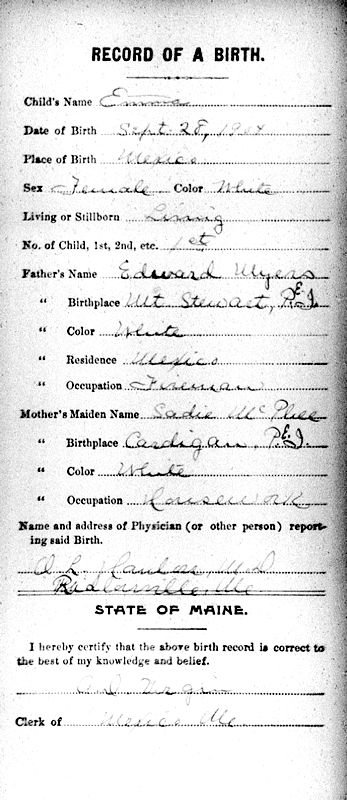 RECORD OF A BIRTH.
Child's Name Emma
Date of Birth Sept. 28, 1904
Place of Birth Mexico
Sex Female Color White
Living or Stillborn Living
No. of Child, 1st, 2nd, etc. 1st
Father's Name Edward Myers
" Birthplace Mt Stewart, P.E.I.
" Color White
" Residence Mexico
" Occupation Fireman
Mother's Maiden Name Sadie McPhee
" Birthplace Cardigan, P.E.I.
" Color White
" Occupation Housework
Name and address of Physician (or other person) report-
ing said Birth.
M.D
Me
STATE OF MAINE.
I hereby certify that the above birth record is correct to
the best of my knowledge and belief.
Clerk of Mexico Me.